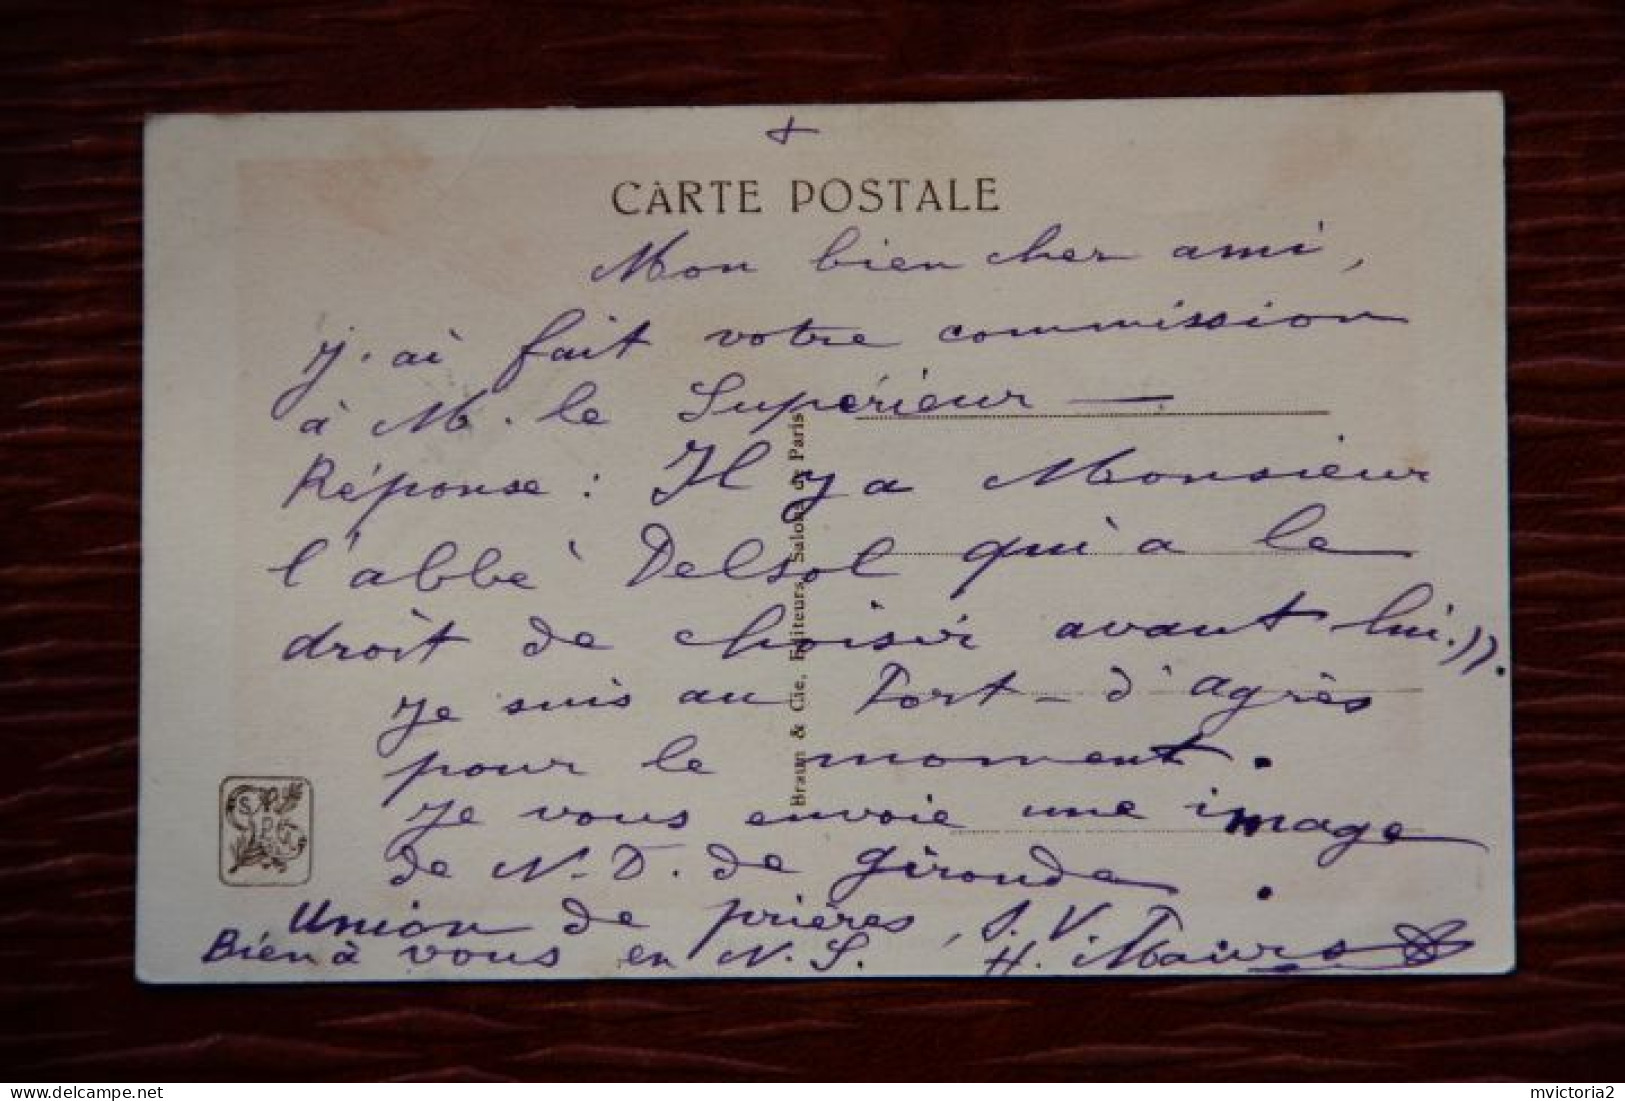 +
CARTE POSTALE
Mon bien cher ami,
J'ai fait votre commission
à M. le Supérieur —
Réponse : Il y a Monsieur
l'abbé Delsol qui a le
droit de choisir avant lui.)).
Je suis au Fort-d'agrès
pour le moment.
Je vous envoie une image
de N.-D. de Gironde.
Union de prières, S. V.
Bien à vous en N. S. H.
Braun & Cie, Editeurs, Salons de Paris
mvictoria2